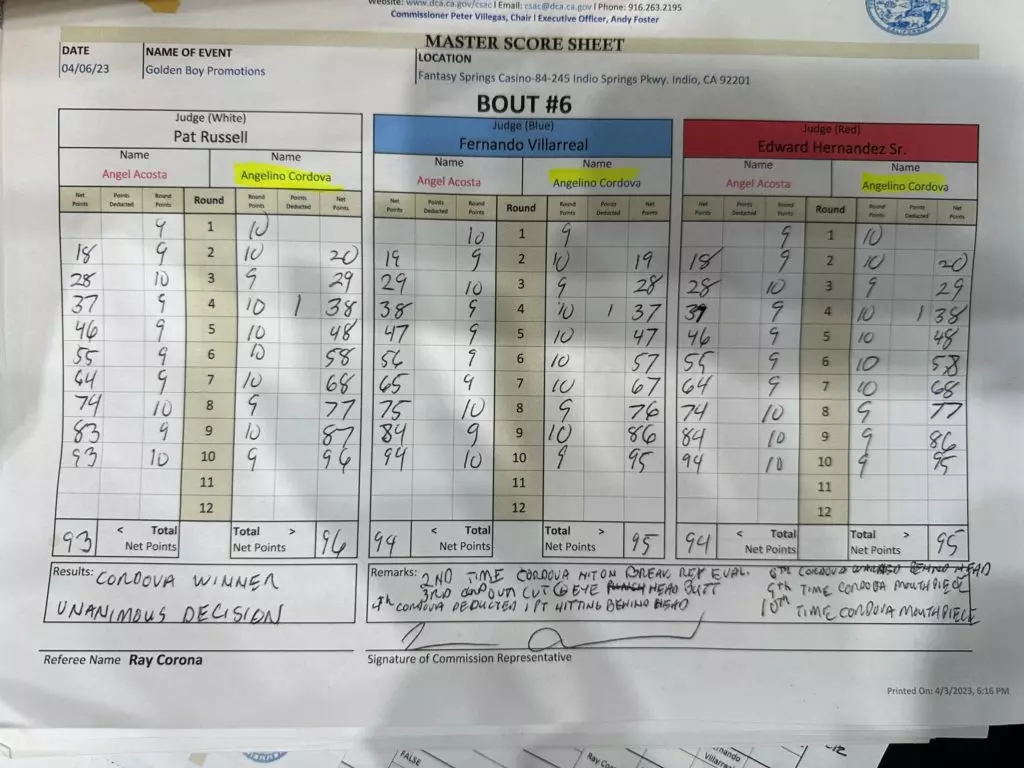 Website: www.dca.ca.gov/csac | Email: csac@dca.ca.gov | Phone: 916.263.2195
Commissioner Peter Villegas, Chair | Executive Officer, Andy Foster
MASTER SCORE SHEET
DATE NAME OF EVENT LOCATION
04/06/23 Golden Boy Promotions Fantasy Springs Casino-84-245 Indio Springs Pkwy. Indio, CA 92201
BOUT #6
Judge (White) Judge (Blue) Judge (Red)
Pat Russell Fernando Villarreal Edward Hernandez Sr.
Name Name Name Name Name Name
Angel Acosta Angelino Cordova Angel Acosta Angelino Cordova Angel Acosta Angelino Cordova
Net Points Points Deducted Round Points Round Round Points Points Deducted Net Points Net Points Points Deducted Round Points Round Round Points Points Deducted Net Points Net Points Points Deducted Round Points Round Round Points Points Deducted Net Points
9 1 10 10 1 9 9 1 10
18 9 2 10 20 19 9 2 10 19 18 9 2 10 20
28 10 3 9 29 29 10 3 9 28 28 10 3 9 29
37 9 4 10 1 38 38 9 4 10 1 37 37 9 4 10 1 38
46 9 5 10 48 47 9 5 10 47 46 9 5 10 48
55 9 6 10 58 56 9 6 10 57 55 9 6 10 58
64 9 7 10 68 65 9 7 10 67 64 9 7 10 68
74 10 8 9 77 75 10 8 9 76 74 10 8 9 77
83 9 9 10 87 84 9 9 10 86 84 10 9 9 86
93 10 10 9 96 94 10 10 9 95 94 10 10 9 95
11 11 11
12 12 12
93 < Total Net Points Total > Net Points 96 94 < Total Net Points Total > Net Points 95 94 < Total Net Points Total > Net Points 95
Results: CORDOVA WINNER
UNANIMOUS DECISION
Remarks: 2ND TIME CORDOVA HIT ON BREAK REF EVAL.
3RD CUT EYE HEAD BUTT
4th CORDOVA DEDUCTED 1 PT HITTING BEHIND HEAD
6TH CORDOVA WARNED BEHIND HEAD
9th TIME CORDOVA MOUTHPIECE
10th TIME CORDOVA MOUTHPIECE
Referee Name Ray Corona
Signature of Commission Representative
Printed On: 4/3/2023, 6:16 PM
FALSE